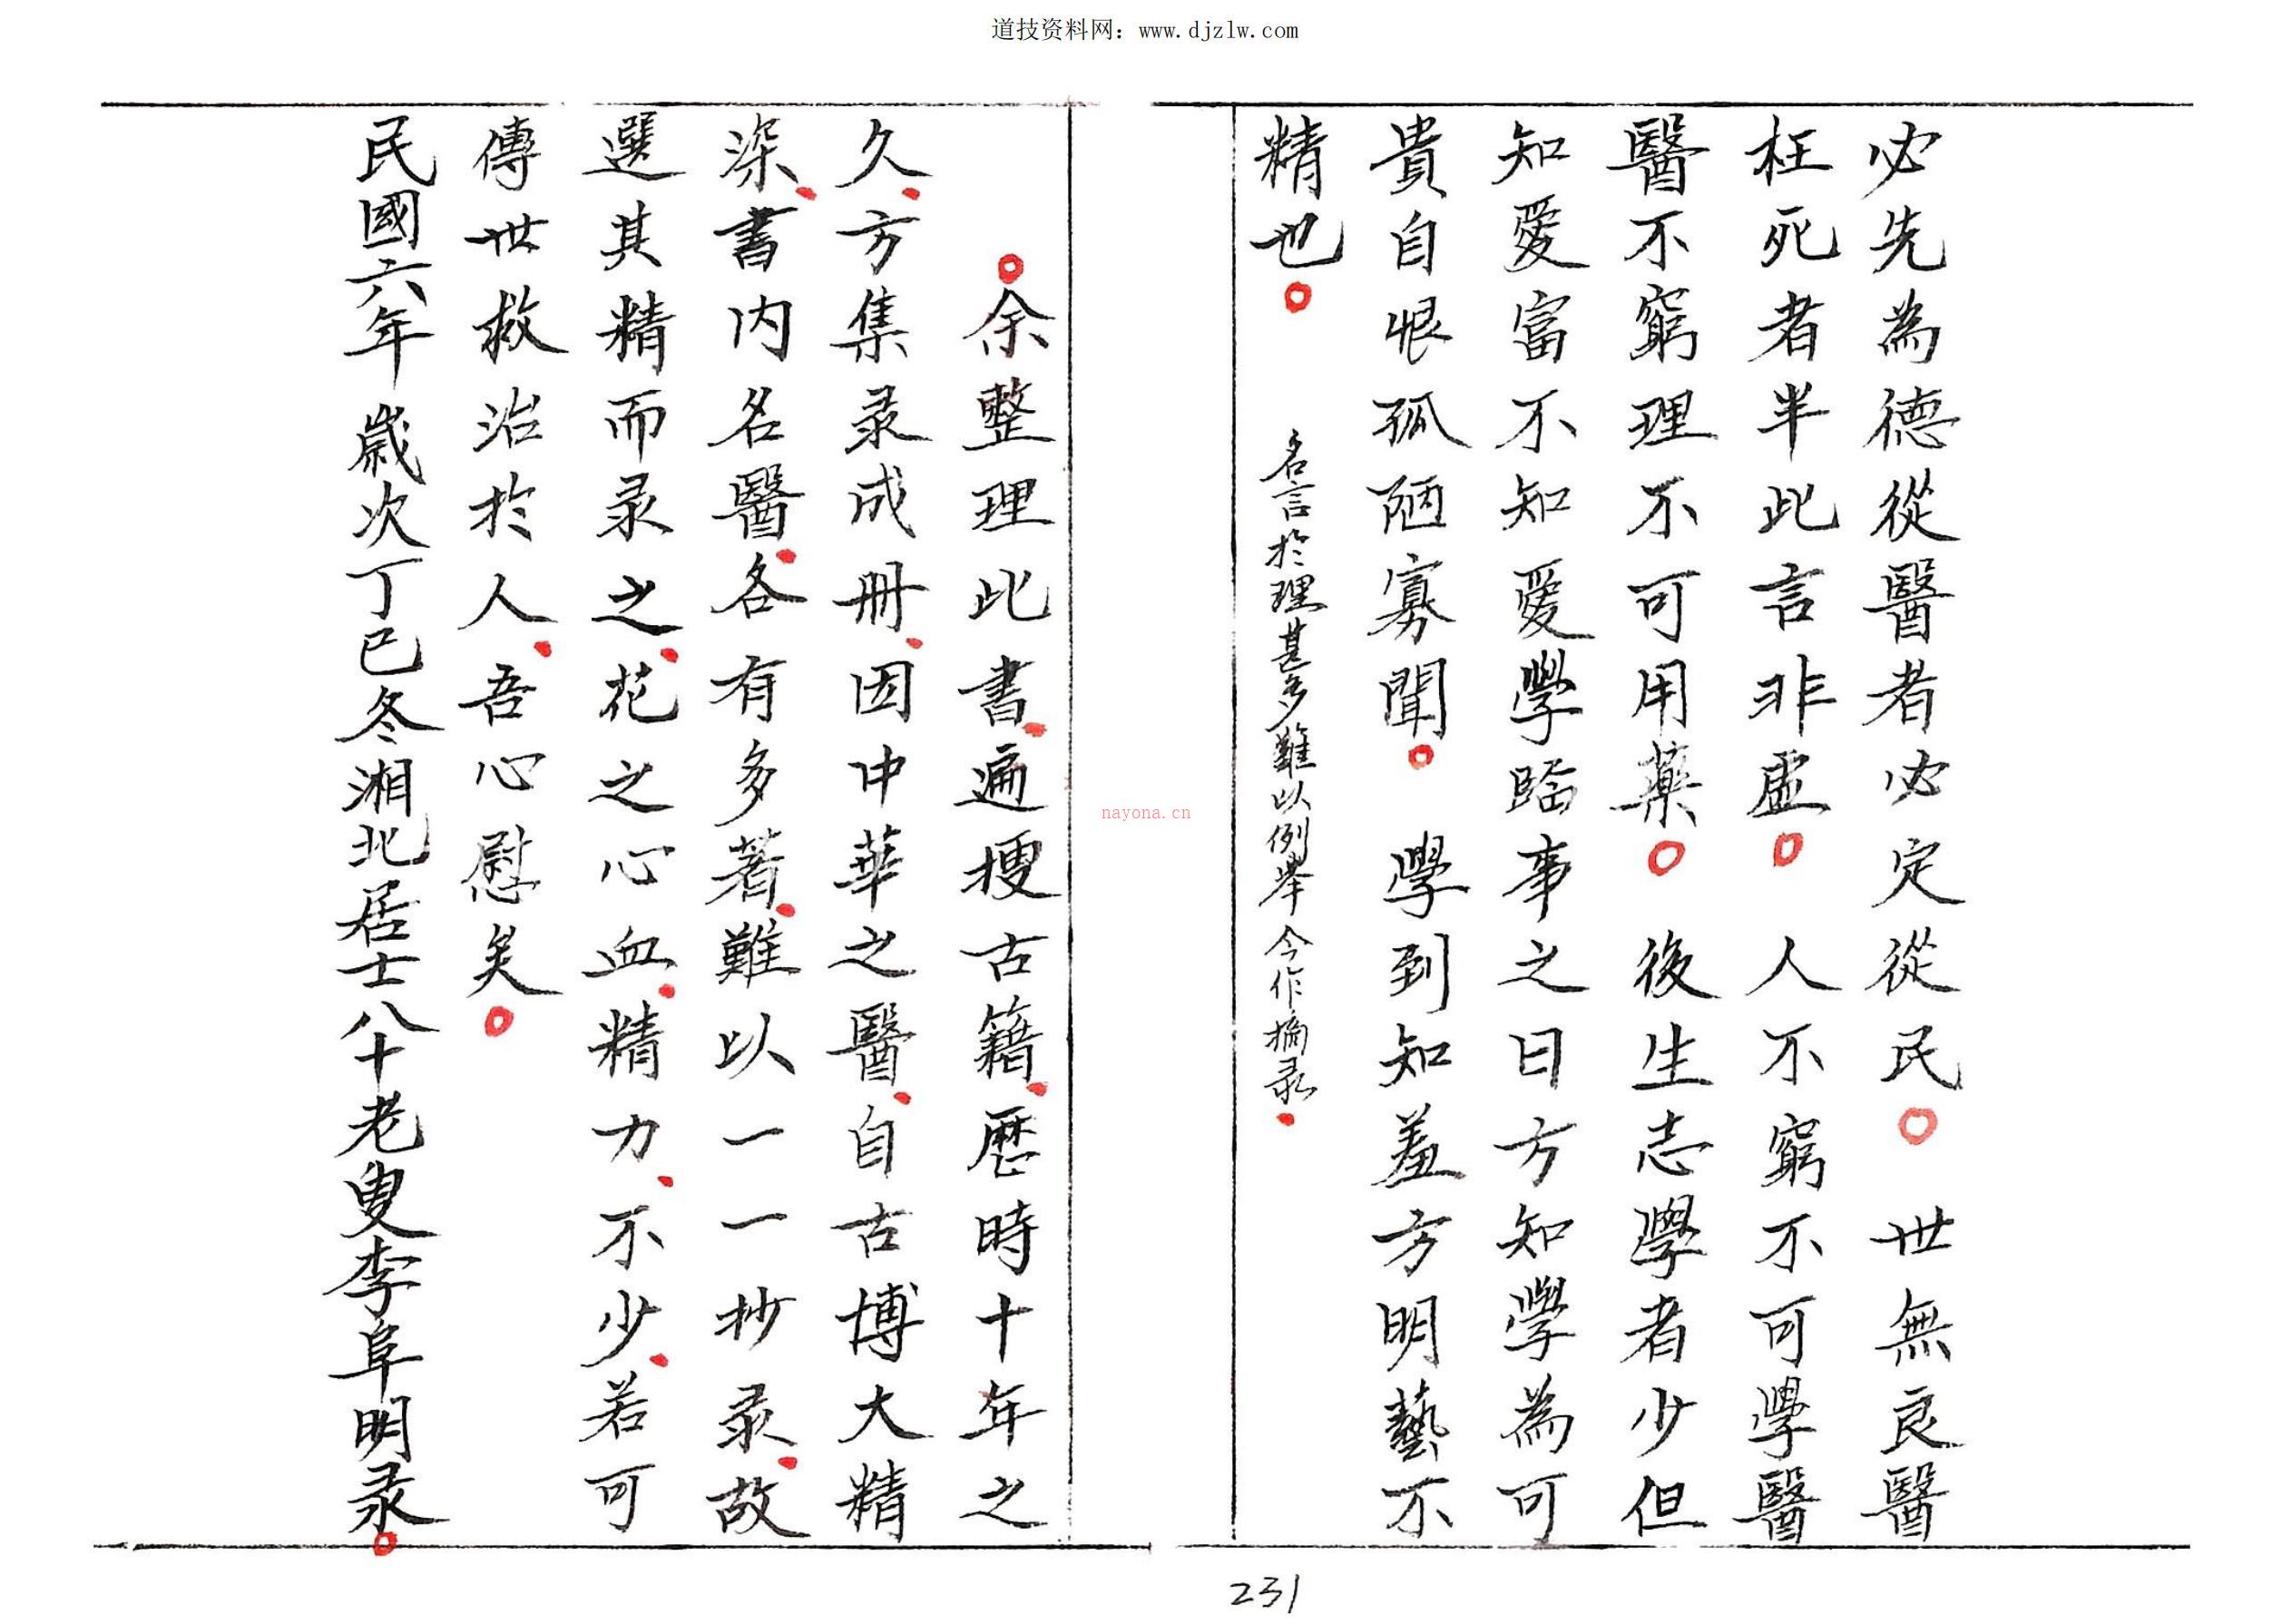 道技资料网：www.djzlw.com
必先為德從醫者必定從民。世無良醫
枉死者半此言非虛。人不窮不可學醫
醫不窮理不可用藥。後生志學者少但
知愛富不知愛學臨事之日方知學為可
貴自恨孤陋寡聞。學到知羞方明藝不
精也。名言於理甚多難以例举今作摘录.
。余整理此書.遍搜古籍.歷時十年之
久.方集录成册.因中華之醫.自古博大精
深.書内名醫.各有多著.難以一一抄录.故
選其精而录之.花之心血.精力.不少.若可
傳世救治於人.吾心慰矣。
民國六年歲次丁巳冬湘北居士八十老叟李阜明录。
nayona.cn
231